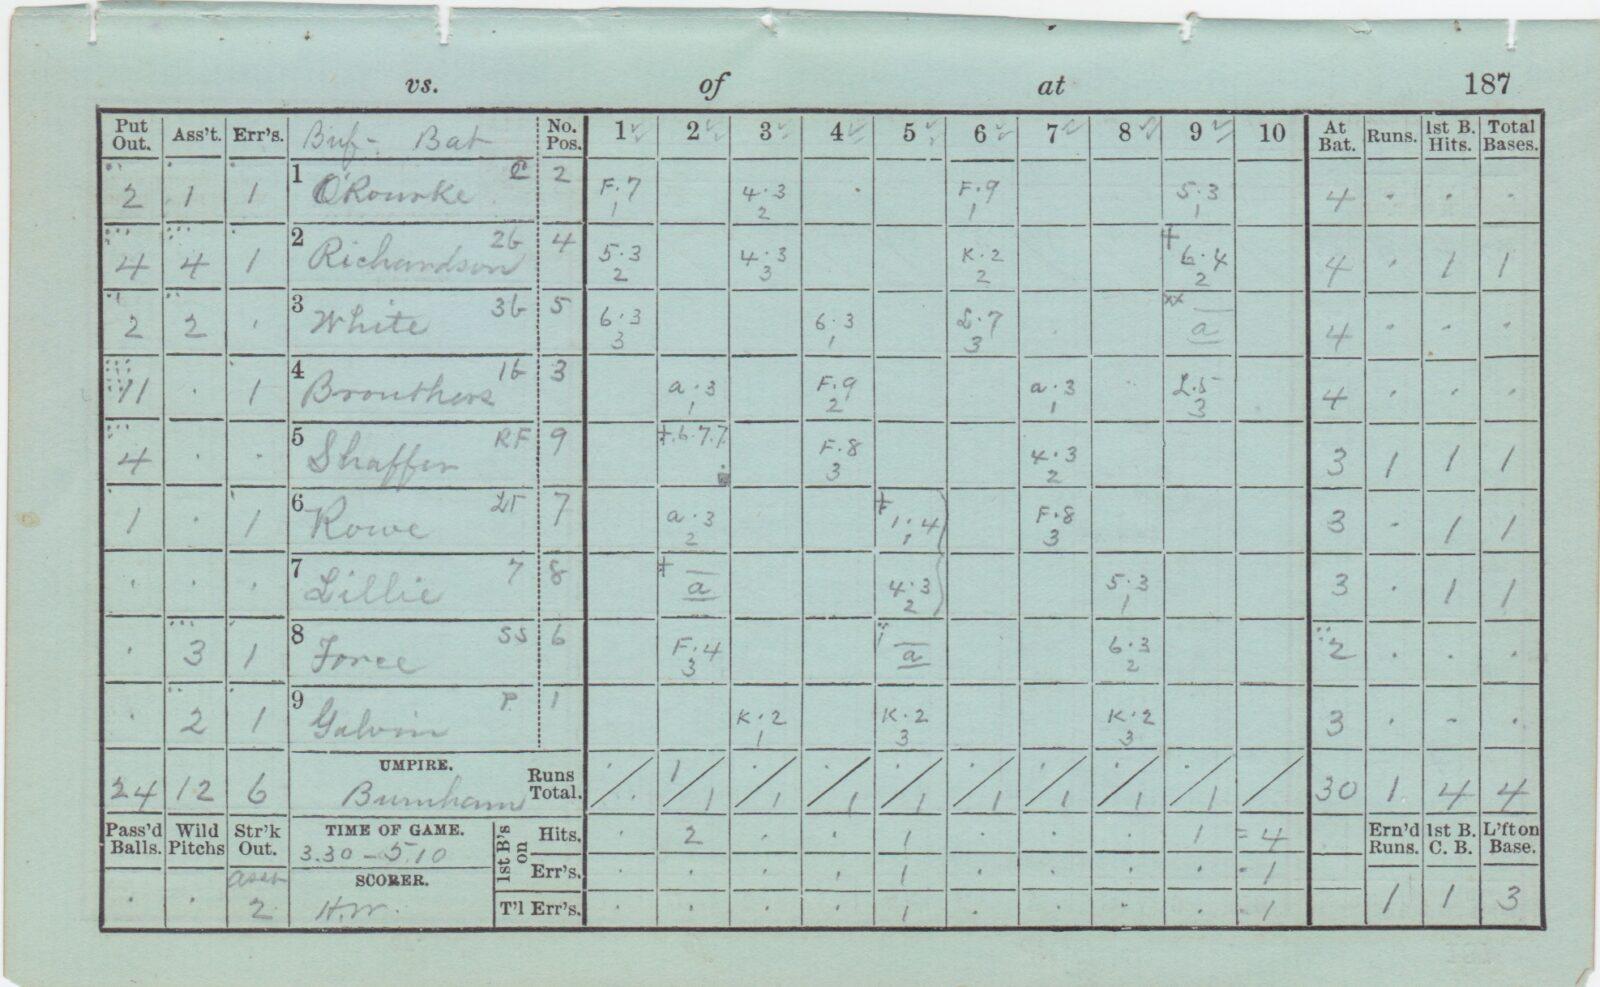 vs. of at 187
Put Out. Ass't. Err's. Buf- Bat No. Pos. 1 2 3 4 5 6 7 8 9 10 At Bat. Runs. 1st B. Hits. Total Bases.
2 1 1 1 O'Rourke C 2 F.7 1 4.3 2 F.9 1 5.3 1 4 . . .
4 4 1 2 Richardson 2b 4 5.3 2 4.3 3 K.2 2 + 6.4 2 4 . 1 1
2 2 . 3 White 3b 5 6.3 3 6.3 1 L.7 3 xx a 4 . . .
11 . 1 4 Brouthers 1b 3 a.3 1 F.9 2 a.3 1 L.5 3 4 . . .
4 . . 5 Shaffer RF 9 +.6.7.7 F.8 3 4.3 2 3 1 1 1
1 . 1 6 Rowe Lf 7 a.3 2 + 1.4 1 F.8 3 3 . 1 1
. . . 7 Lillie 7 8 + a 4.3 2 5.3 1 3 . 1 1
. 3 1 8 Force SS 6 F.4 3 a 6.3 2 2 . . .
. 2 1 9 Galvin P. 1 K.2 1 K.2 3 K.2 3 3 . . .
24 12 6 UMPIRE. Burnham Runs Total. . / . 1 / 1 . / 1 . / 1 . / 1 . / 1 . / 1 . / 1 . / 1 / 30 1 4 4
Pass'd Balls. Wild Pitchs Str'k Out. TIME OF GAME. 3.30 - 5.10 1st B's on Hits. . 2 . . 1 . . . 1 = 4 Ern'd Runs. 1st B. C. B. L'ft on Base.
. . 2 SCORER. H.W. Err's. . . . . 1 . . . . - 1 1 1 3
T'l Err's. . . . . 1 . . . . - 1